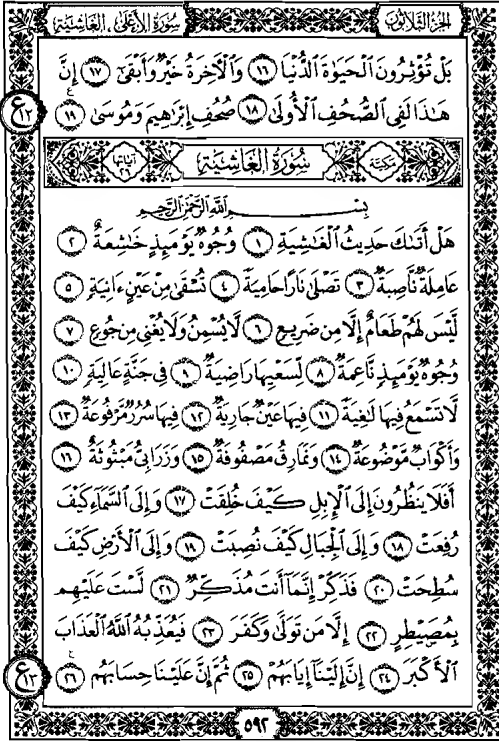 الجزء الثلاثون
سورة الأعلى ، الغاشية
بَلْ تُؤْثِرُونَ ٱلْحَيَوٰةَ ٱلدُّنْيَا ١٦ وَٱلْءَاخِرَةُ خَيْرٌ وَأَبْقَىٰٓ ١٧ إِنَّ
هَٰذَا لَفِى ٱلصُّحُفِ ٱلْأُولَىٰ ١٨ صُحُفِ إِبْرَٰهِيمَ وَمُوسَىٰ ١٩
ع ١٢
مكية
سُورَةُ الْغَاشِيَةِ
آياتها ٢٦
بِسْمِ ٱللَّهِ ٱلرَّحْمَٰنِ ٱلرَّحِيمِ
هَلْ أَتَىٰكَ حَدِيثُ ٱلْغَٰشِيَةِ ١ وُجُوهٌ يَوْمَئِذٍ خَٰشِعَةٌ ٢
عَامِلَةٌ نَّاصِبَةٌ ٣ تَصْلَىٰ نَارًا حَامِيَةً ٤ تُسْقَىٰ مِنْ عَيْنٍ ءَانِيَةٍ ٥
لَّيْسَ لَهُمْ طَعَامٌ إِلَّا مِن ضَرِيعٍ ٦ لَّا يُسْمِنُ وَلَا يُغْنِى مِن جُوعٍ ٧
وُجُوهٌ يَوْمَئِذٍ نَّاعِمَةٌ ٨ لِّسَعْيِهَا رَاضِيَةٌ ٩ فِى جَنَّةٍ عَالِيَةٍ ١٠
لَّا تَسْمَعُ فِيهَا لَٰغِيَةً ١١ فِيهَا عَيْنٌ جَارِيَةٌ ١٢ فِيهَا سُرُرٌ مَّرْفُوعَةٌ ١٣
وَأَكْوَابٌ مَّوْضُوعَةٌ ١٤ وَنَمَارِقُ مَصْفُوفَةٌ ١٥ وَزَرَابِىُّ مَبْثُوثَةٌ ١٦
أَفَلَا يَنظُرُونَ إِلَى ٱلْإِبِلِ كَيْفَ خُلِقَتْ ١٧ وَإِلَى ٱلسَّمَآءِ كَيْفَ
رُفِعَتْ ١٨ وَإِلَى ٱلْجِبَالِ كَيْفَ نُصِبَتْ ١٩ وَإِلَى ٱلْأَرْضِ كَيْفَ
سُطِحَتْ ٢٠ فَذَكِّرْ إِنَّمَآ أَنتَ مُذَكِّرٌ ٢١ لَّسْتَ عَلَيْهِم
بِمُصَيْطِرٍ ٢٢ إِلَّا مَن تَوَلَّىٰ وَكَفَرَ ٢٣ فَيُعَذِّبُهُ ٱللَّهُ ٱلْعَذَابَ
ٱلْأَكْبَرَ ٢٤ إِنَّ إِلَيْنَآ إِيَابَهُمْ ٢٥ ثُمَّ إِنَّ عَلَيْنَا حِسَابَهُم ٢٦
ع ١٣
٥٩٢